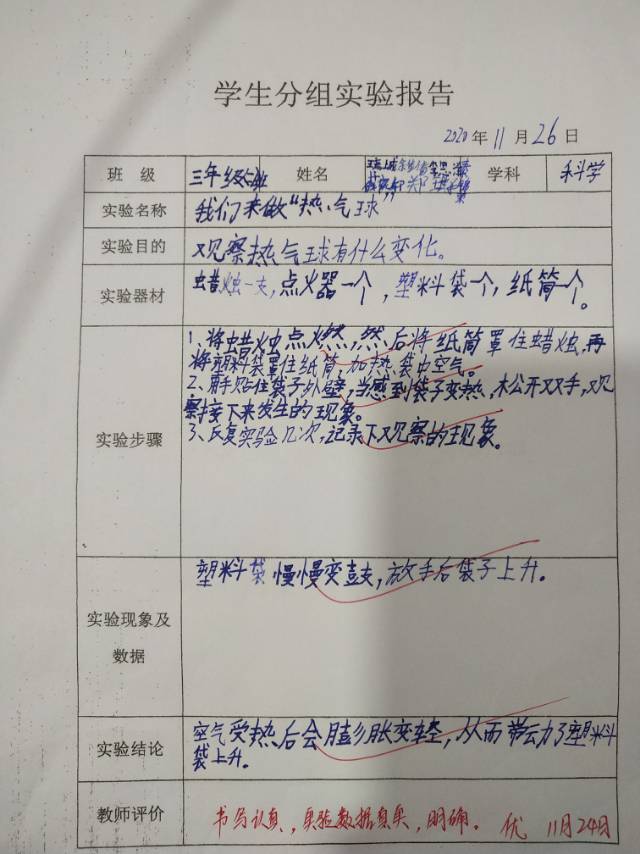 学生分组实验报告
2020年11月26日
班 级 三年级 班 姓名 学科 科学
实验名称 我们来做“热气球”
实验目的 观察热气球有什么变化。
实验器材 蜡烛一支,点火器一个,塑料袋一个,纸筒一个。
实验步骤
1、将蜡烛点燃,然后将纸筒罩住蜡烛,再
将塑料袋罩住纸筒,加热袋中空气。
2、用手贴住袋子外壁,当感到袋子变热,松开双手,观
察接下来发生的现象。
3、反复实验几次,记录下观察的现象。
实验现象及
数据
塑料袋慢慢变鼓,放手后袋子上升。
实验结论
空气受热后会膨胀变轻,从而带动了塑料
袋上升。
教师评价 书写认真,实验数据真实,明确。 优 11月24日